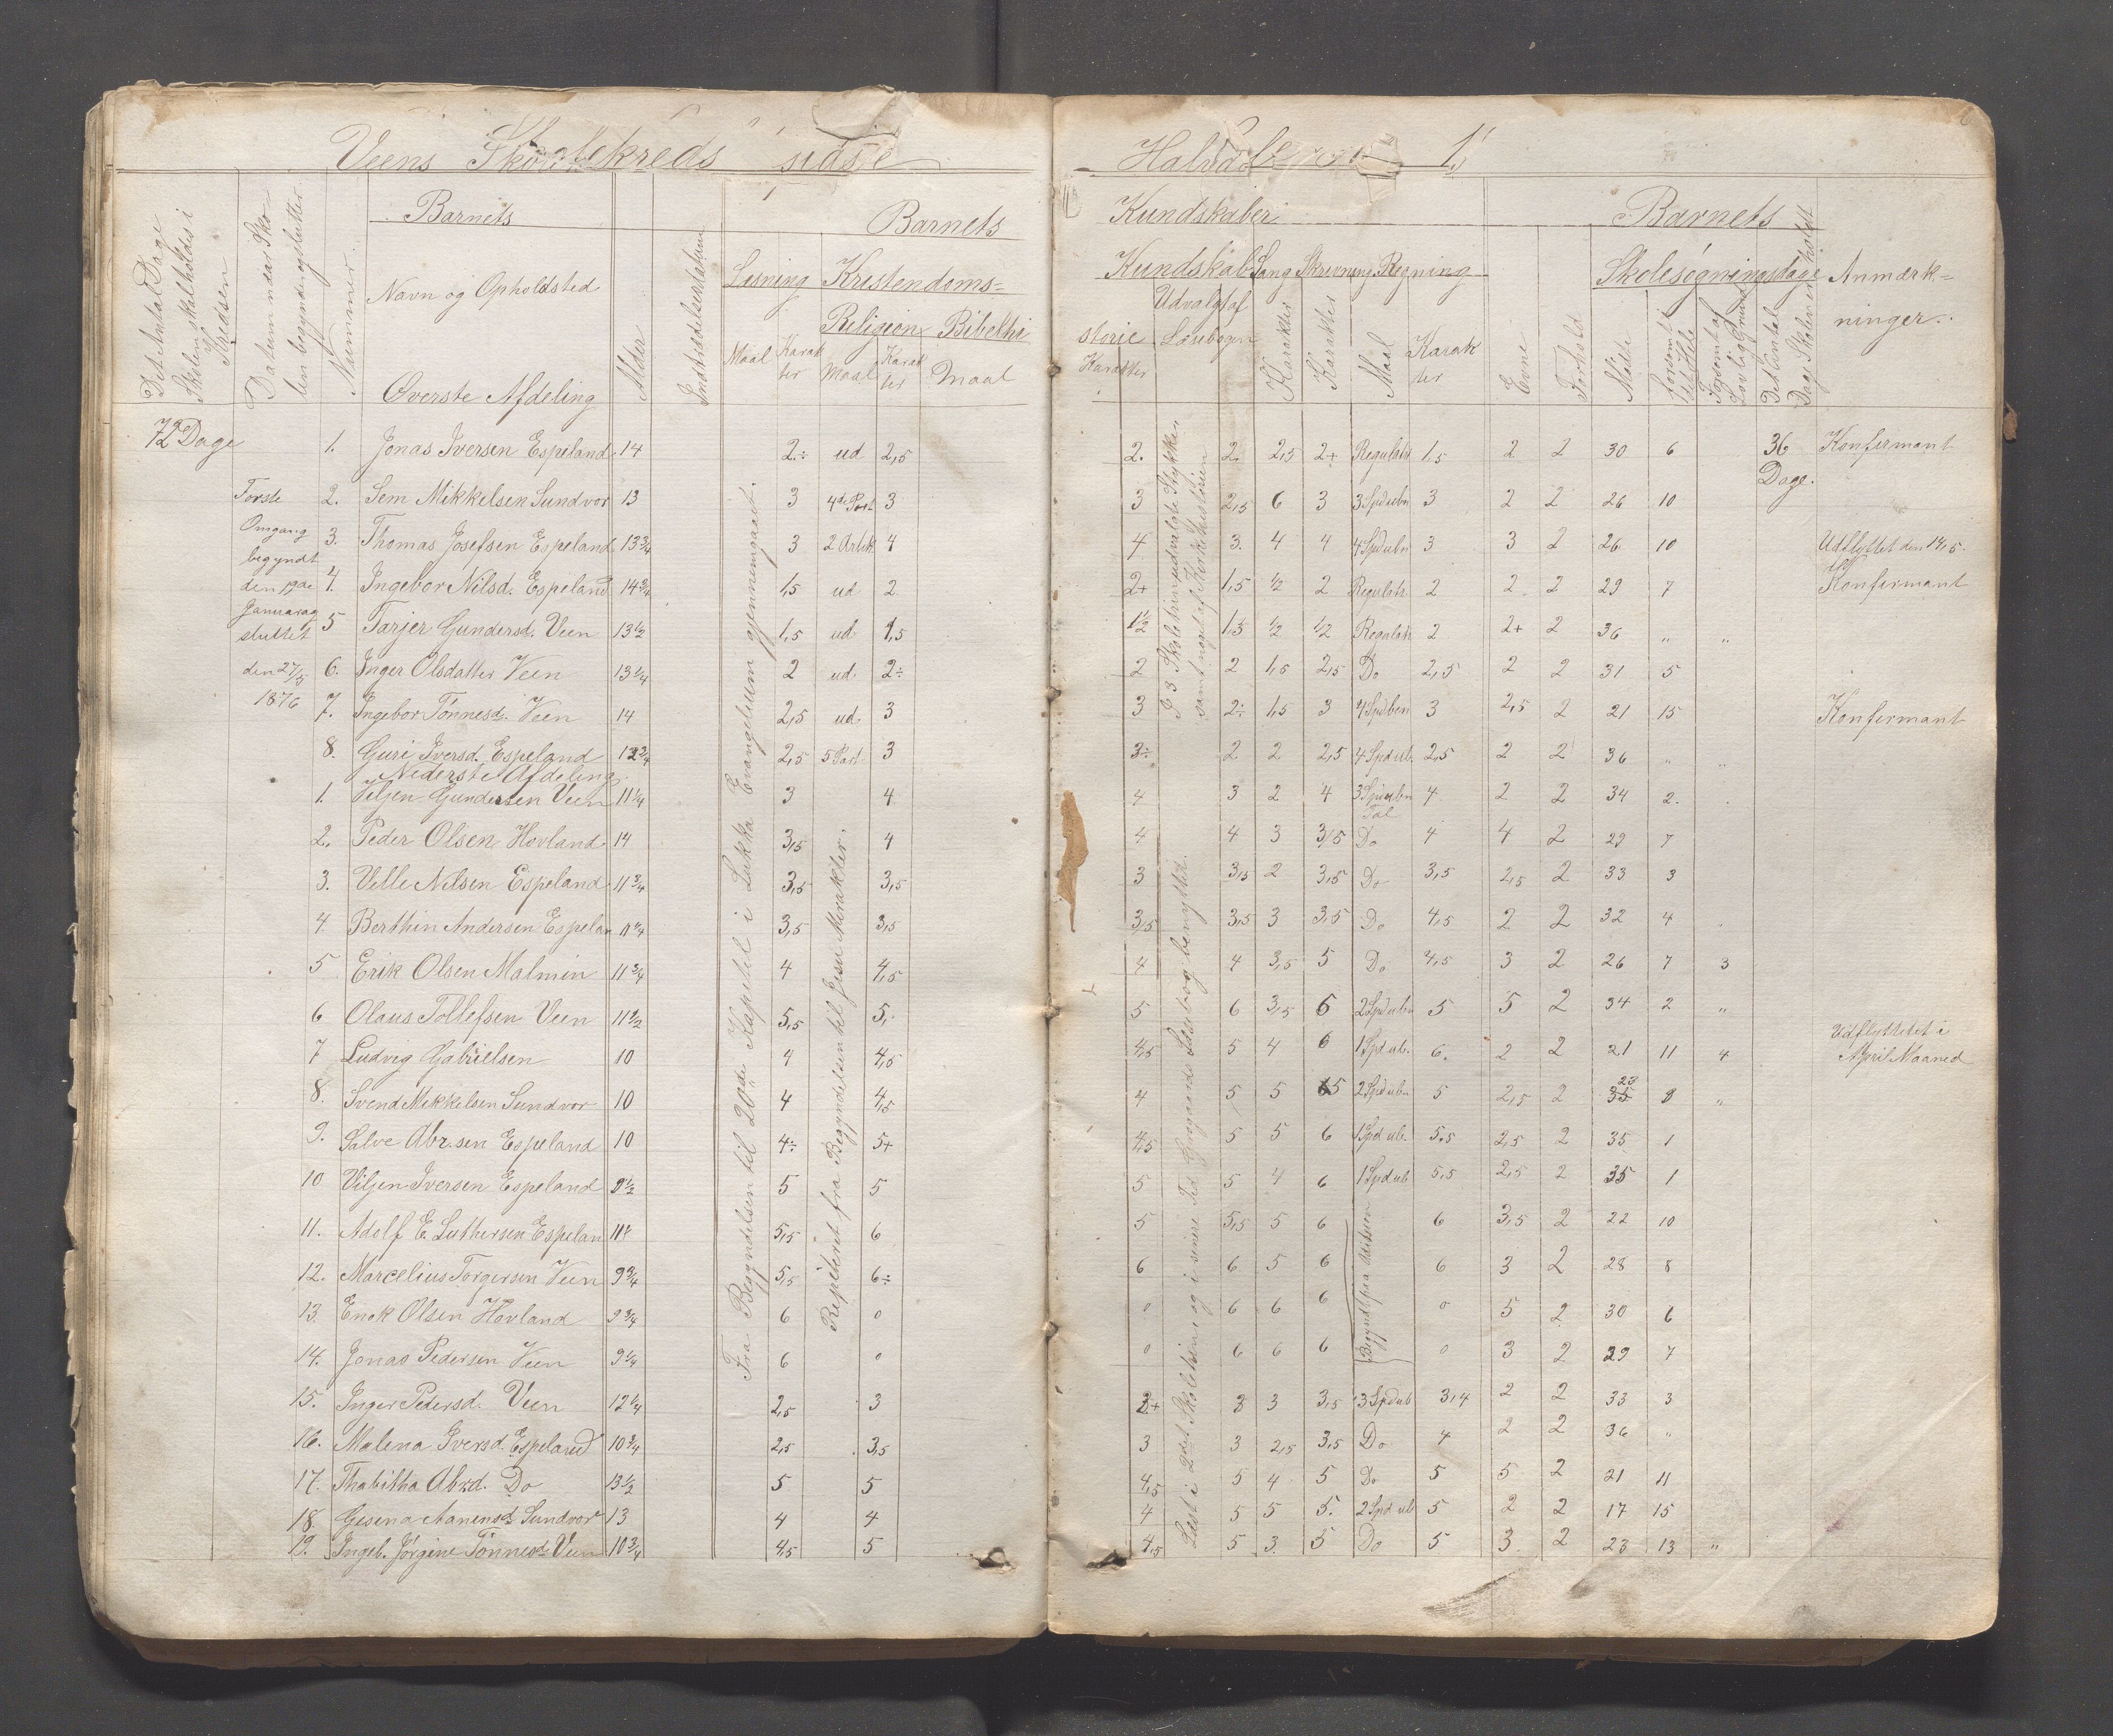 Veens Skolekreds sidste Halvdel
Det Antal Dage Skolen skal holdes i Kredsen
Datum naar Skolen begynder og slutter
Nummer
Barnets
Navn og Opholdsted
Øverste Afdeling
Alder
Indtrædelsesdatum
Barnets
Læsning
Maal
Karakter
Kristendoms-
Religion
Maal
Karakter
Bibelhi
Maal
Kundskaber
Kundskab
storie
Karakter
Udvalgt af Læsebogen
Sang
Karakter
Skrivning
Karakter
Regning
Maal
Karakter
Evne
Forhold
Barnets
Skolesøgningsdage
Mødte
forsømt det Hele
Forsømt af Lovlig Grund
Det Antal Dage Skolen er holdt
Anmærkninger
72 Dage
Første Omgang begyndt den 19de Januar og sluttet den 27/5 1876
1. Jonas Iversen Espeland 14 2.÷ ud 2,5 2. 2. 2,5 2+ Regulatr 1,5 2 2 30 6 36 Dage. Konfirmant
2. Sem Mikkelsen Sundvor 13 3 4de Part 3 3 2,5 6 3 3 Spdubn 3 2 2 26 10
3. Thomas Josefsen Espeland 13 3/4 3 2 Artik 4 4 3. 4 4 4 Spdubn 3 3 2 26 10 Udflyttet den 14/5.
4. Ingebor Nilsd. Espeland 14 3/4 1,5 ud 2 2+ 1,5 1/2 2 Regulatr 2 2 2 29 7 Konfirmant
5 Tarjer Gundersd. Veen 13 1/2 1,5 ud. 1,5 1 1/2 1.5 1/2 1/2 Regulatr 2 2+ 2 36 „ „
6. Inger Olsdatter Veen 13 1/4 2 ud. 2÷ 2 2 1,5 2,5 Do 2,5 2 2 31 5
7. Ingebor Tønnesd. Veen 14 2,5 ud. 3 3 2÷ 1,5 3 4 Spdben 3 2,5 2 21 15 Konfirmant
8. Guri Iversd. Espeland 12 3/4 2,5 5 Part 3 3÷ 2 2 2,5 4 Spdub. 2,5 2 2 36 „ „
Nederste Afdeling
1. Viljen Gundersen Veen 11 1/4 3 4 4 3 2 4 3 Spdubn Tal 4 2 2 34 2.
2. Peder Olsen Hovland 14 3,5 4 4 4 3 3,5 Do 4 4 2 29 7
3. Ville Nilsen Espeland 11 3/4 3,5 3,5 3 3,5 2 3,5 Do 3,5 2,5 2 33 3
4. Berthin Andersen Espelan 11 1/4 3,5 3,5 3,5 3,5 3 3,5 Do 4,5 2 2 32 4
5 Erik Olsen Malmin 11 3/4 4 4,5 4 4 3,5 5 Do 4,5 3 2 26 7 3
6 Olaus Tollefsen Veen 11 1/2 5,5 5, 5 6 3,5 6 2 Spdubn 5 5 2 34 2 „
7 Ludvig Gabrielsen 10 4 4,5 4,5 5 4 6 1 Spdub. 6. 2 2 21 11 4 Udflyttet i April Maaned
8. Svend Mikkelsen Sundvor 10 4 4,5 4 5 5 5 2 Spdubn 5 2,5 2 35 23 8 „
9. Salve Abr.sen Espeland 10 4÷ 5+ 4,5 5 5 6 1 Spdub. 5.5 2,5 2 35 1
10 Viljen Iversen Espeland 9 1/2 5 5 5 5 4 6 1 Spdub 5,5 2,5 2 35 1
11. Adolf E. Luthersen Espelan 11 5,5 6 5 5,5 5 6 6 3,5 2 22 10
12. Marcelius Torgersen Veen 9 3/4 5,5 6÷ 6 6 5 6 6 3 2 28 8
13. Enok Olsen Hovland 9 3/4 6 0 0 6 6 6 0 5 2 30 6
14. Jonas Pedersen Veen 9 1/4 6 0 0 6 6 6 0 3 2 29 7
15. Inger Pedersd. Veen 12 1/4 2,5 3 3+ 3 3 3,5 3 Spdub 3,4 2 2 33 3
16. Malena Iversd. Espeland 10 3/4 2,5 3,5 3 3 2,5 3,5 Do 4 2 2 36 „
17. Thabitha Abrd. Do 13 1/2 5 5 4,5 5 4 5 Do 5 5 2 21 11
18. Gesena Aanensd. Sundvor 13 4 4 4 5 5 5. 2 Spdub 5 2 2 17 15
19. Ingeb. Jørgine Tønnesd. Veen 10 3/4 4,5 5 4,5 5 3. 5 Do 5 3. 2 23 13 „
Fra Begyndelsen til 20de Kapitel i Lukka Evangelium gjennemgaaet.
Repeteret fra Begyndelsen til Jesu Mirakler.
I 3 Skoletrin udvalgte Stykker samt noget af Kirkehistorien
Læst i 2det Skoletrin og i senere Tid Jensens Læsebog benyttet.
Begyndt paa Adition